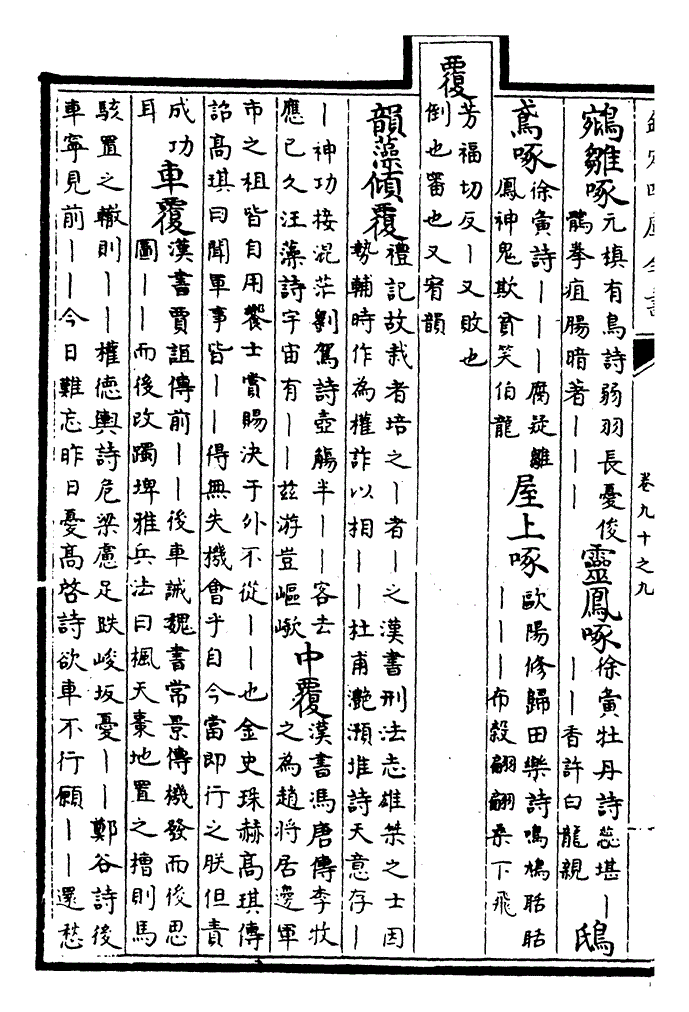 欽定四庫全書
卷九十之九
鵷雛啄
元稹有鳥詩弱羽長憂俊
鶻拳疽腸暗著丨丨丨
靈鳳啄
徐夤牡丹詩蕊堪丨
丨丨香許白龍親
鴟
鳶啄
徐夤詩丨丨丨腐疑雛
鳳神鬼欺貧笑伯龍
屋上啄
歐陽修歸田樂詩鳴鳩聒聒
丨丨丨布穀翩翩桑下飛
覆
芳福切反丨又敗也
倒也審也又宥韻
韻藻傾覆
禮記故栽者培之丨者丨之漢書刑法志雄桀之士因
勢輔時作為權詐以相丨丨杜甫灔澦堆詩天意存丨
丨神功接混茫劉駕詩壺觴半丨丨客去
應已久汪藻詩宇宙有丨丨茲游豈嶇嶔
中覆
漢書馮唐傳李牧
之為趙將居邊軍
市之租皆自用饗士賞賜決于外不從丨丨也金史珠赫高琪傳
詔高琪曰聞軍事皆丨丨得無失機會乎自今當即行之朕但責
成功
耳
車覆
漢書賈誼傳前丨丨後車誡魏書常景傳機發而後思
圖丨丨而後改躅埤雅兵法曰楓天棗地置之槽則馬
駭置之轍則丨丨權德輿詩危梁慮足跌峻坂憂丨丨鄭谷詩後
車寧見前丨丨今日難忘昨日憂高啓詩欲車不行願丨丨還愁